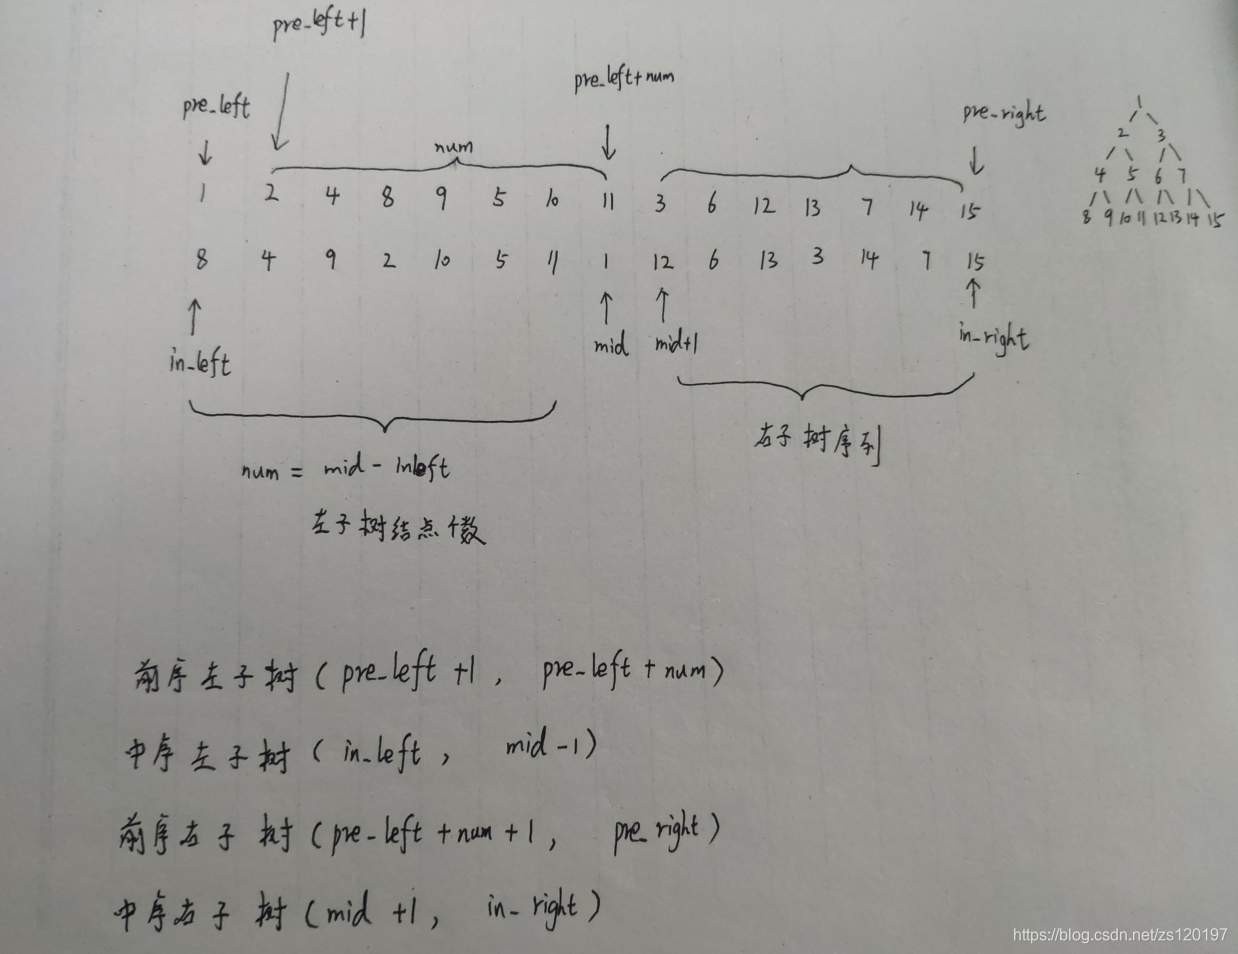 pre_left+1
pre_left+num
pre_left
pre_right
num
1 2 4 8 9 5 10 11 3 6 12 13 7 14 15
8 4 9 2 10 5 11 1 12 6 13 3 14 7 15
in_left
mid
mid+1
in_right
num = mid - inleft
左子树结点个数
右子树序列
1
2 3
4 5 6 7
8 9 10 11 12 13 14 15
前序左子树(pre_left +1, pre_left + num)
中序左子树(in_left, mid -1)
前序右子树(pre_left + num + 1, pre_right)
中序右子树(mid +1, in_right)
https://blog.csdn.net/zs120197